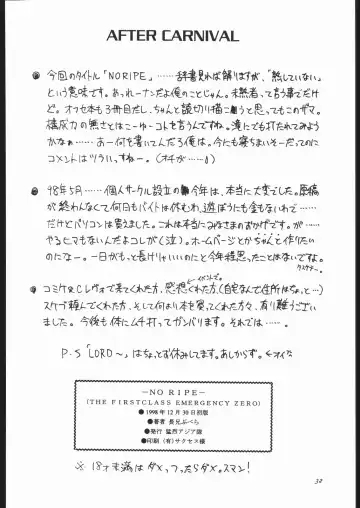 AFTER CARNIVAL
今回のタイトル「NORIPE」……辞書見れば解りますが、「熟していない」
という意味です。あっれーナンだよ俺のことじゃん。未熟者って言う事でだけ
ど。オフセ本も3冊目だし、ちゃんと読切り描こうと思ってもこのザマ。
構成力の無さとはこーゆーコトを言うんですね。滝にでも打たれてみよう
かなぁ……おー何を書いてんだろ俺は。今にも寝ちまいそーだってのに
コメントはツライっすねー。(オチが……。)
98年5月……個人サークル設立の今年は、本当に大変でした。原稿
が終わんなくて何日もバイトは休むわ、遊ぼうにも金もないわで……
だけどパソコンは買えました。これは本当にみなさまのおかげです。が……
やるヒマもないんだよコレが(泣)。ホームページとかちゃんと作りたい
のになー。一日がもっと長けりゃいいのにと今年程思ったことはないですよ。
コミケやCレヴォで来てくれた方、感想くれた方(自宅なんで住所はちょっと…)
イベントで。
スケブ頼んでくれた方、そして何より本を買ってくれた方々、有り難うござい
ました。今後も体にムチ打ってガンバります。それでは……。
P.S「LORD〜」はちょっとお休みしてます。あしからず。
—NO RIPE—
(THE FIRSTCLASS EMERGENCY ZERO)
●1998年12月30日初版
●著者 長兄ぷぺら
●発行 猛烈アジア版
●印刷 (有)サクセス様
※18才未満はダメっつったらダメ。スマン!
32